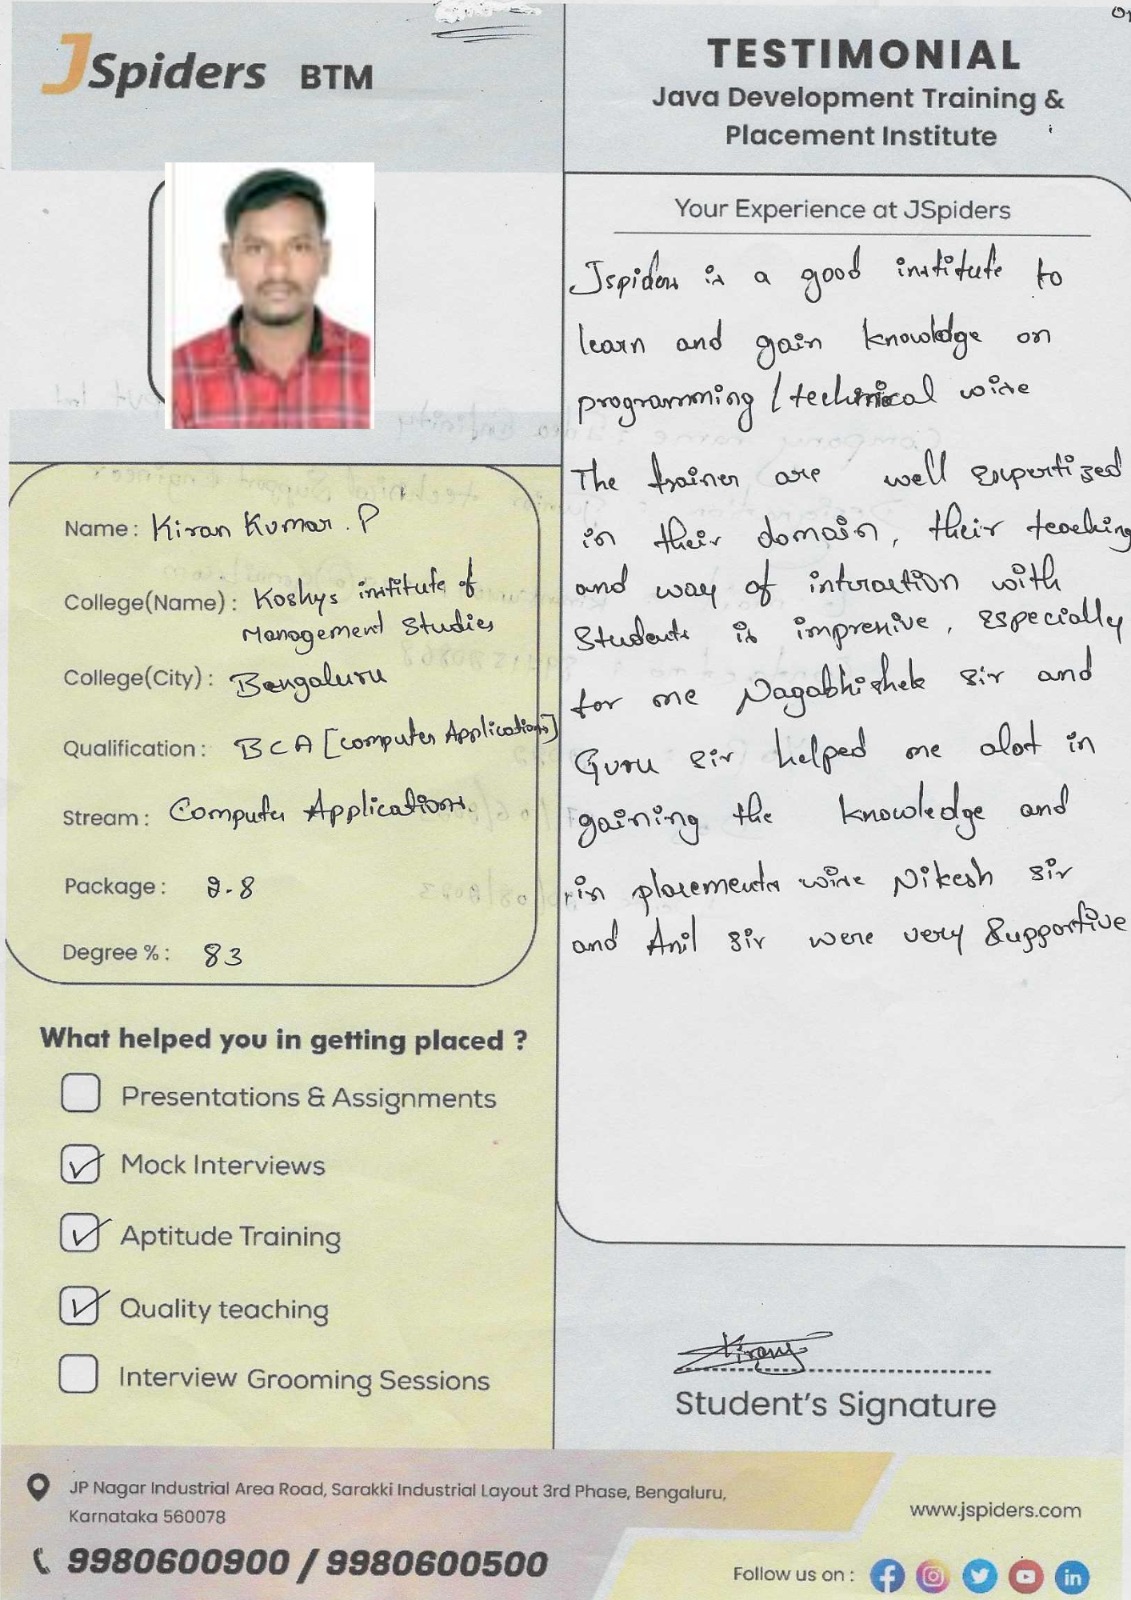 JSpiders BTM
TESTIMONIAL
Java Development Training &
Placement Institute
Your Experience at JSpiders
Jspiders is a good institute to
learn and gain knowledge on
programming / technical wise
The trainer are well expertized
in their domain, their teaching
and way of interaction with
students is impressive, especially
for me Nagabhishek sir and
Guru sir helped me alot in
gaining the knowledge and
in placements wise Nikesh sir
and Anil sir were very supportive
Name : Kiran Kumar . P
College(Name) : Koshys institute of
Management Studies
College(City) : Bengaluru
Qualification : BCA [Computer Applications]
Stream : Computer Applications.
Package : 2.8
Degree % : 83
What helped you in getting placed ?
Presentations & Assignments
Mock Interviews
Aptitude Training
Quality teaching
Interview Grooming Sessions
Kiran
Student's Signature
JP Nagar Industrial Area Road, Sarakki Industrial Layout 3rd Phase, Bengaluru,
Karnataka 560078
9980600900 / 9980600500
www.jspiders.com
Follow us on :